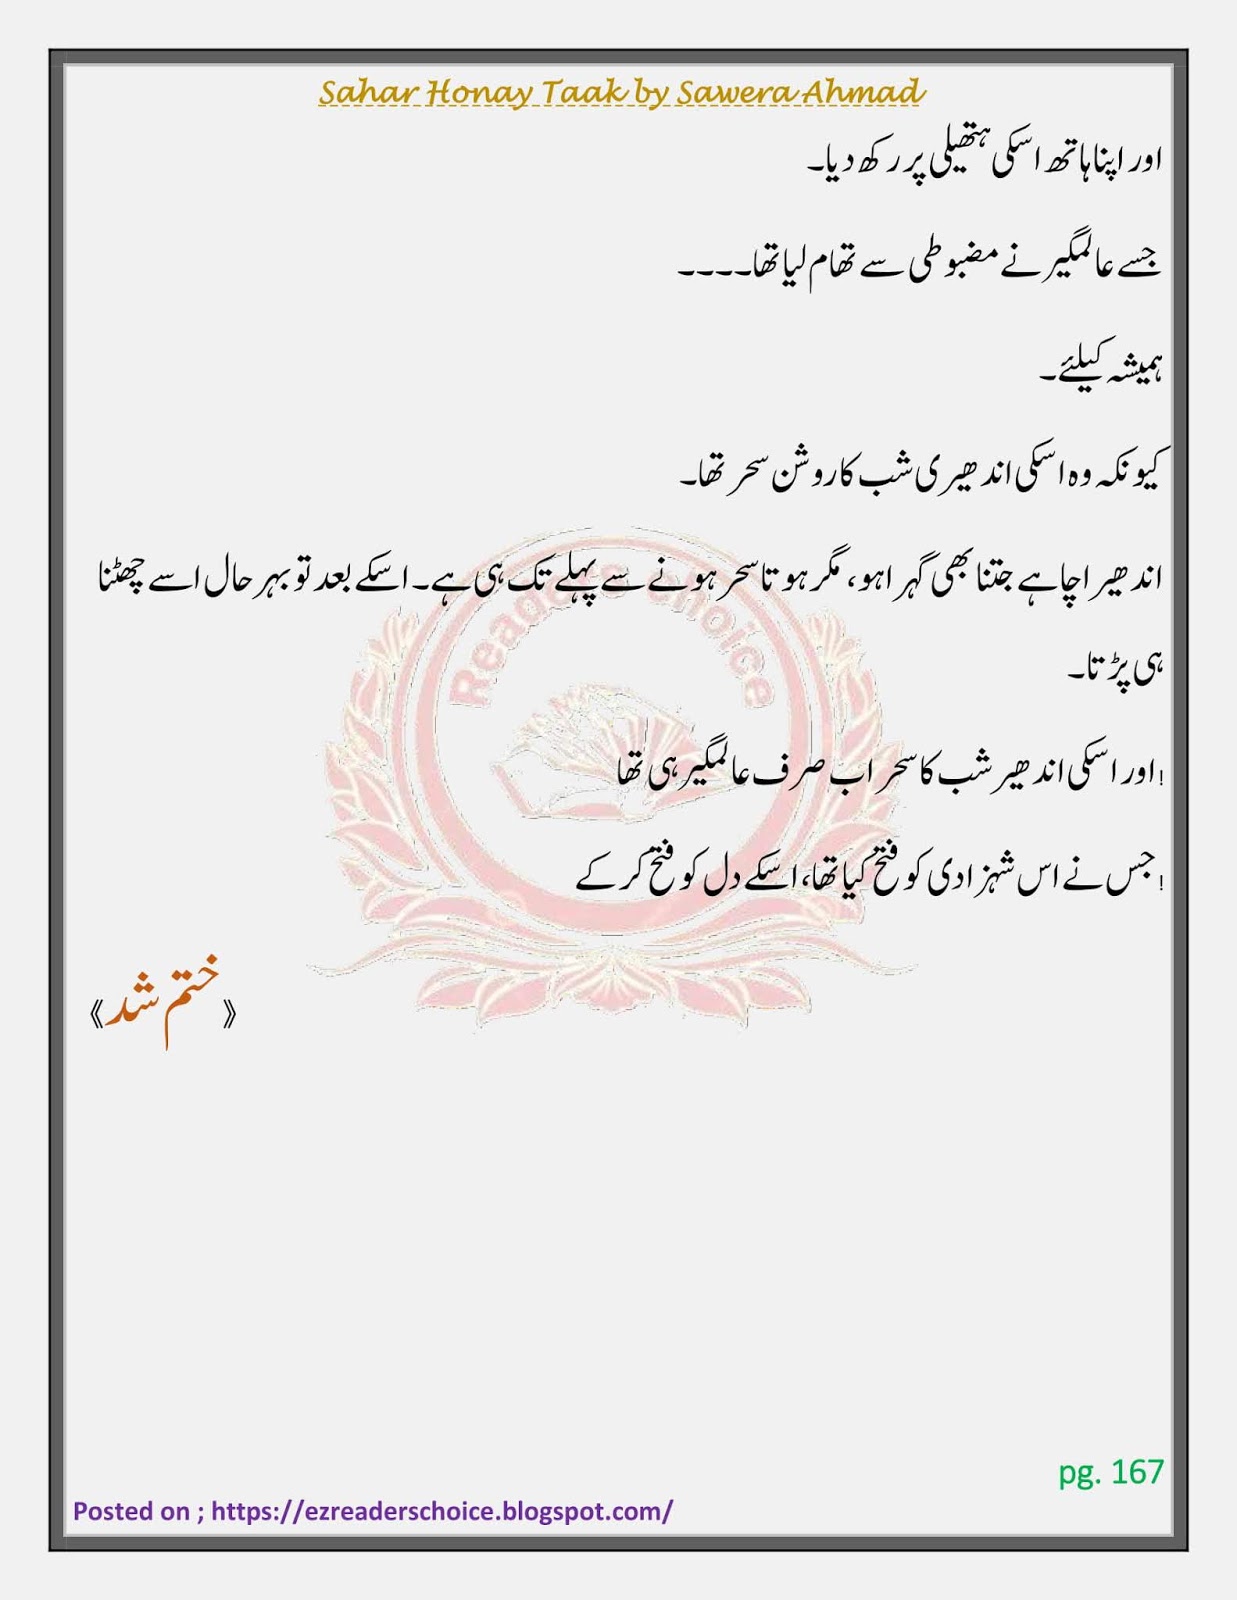 Sahar Honay Taak by Sawera Ahmad
اور اپنا ہاتھ اسکی ہتھیلی پر رکھ دیا۔
جسے عالمگیر نے مضبوطی سے تھام لیا تھا۔۔۔۔
ہمیشہ کیلئے۔
کیونکہ وہ اسکی اندھیری شب کا روشن سحر تھا۔
اندھیرا چاہے جتنا بھی گہرا ہو، مگر ہوتا سحر ہونے سے پہلے تک ہی ہے۔ اسکے بعد تو بہر حال اسے چھٹنا
ہی پڑتا۔
!اور اسکی اندھیر شب کا سحر اب صرف عالمگیر ہی تھا
!جس نے اس شہزادی کو فتح کیا تھا، اسکے دل کو فتح کر کے
《ختم شد》
Readers Choice
pg. 167
Posted on ; https://ezreaderschoice.blogspot.com/